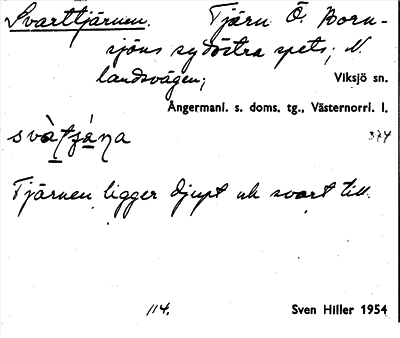 Svarttjärnen. Tjärn Ö. Born-
sjöns sydöstra spets; N.
landsvägen; Viksjö sn.
Ångermanl. s. doms. tg., Västernorrl. l.
374
Tjärnen ligger djupt och svart till.
114. Sven Hiller 1954